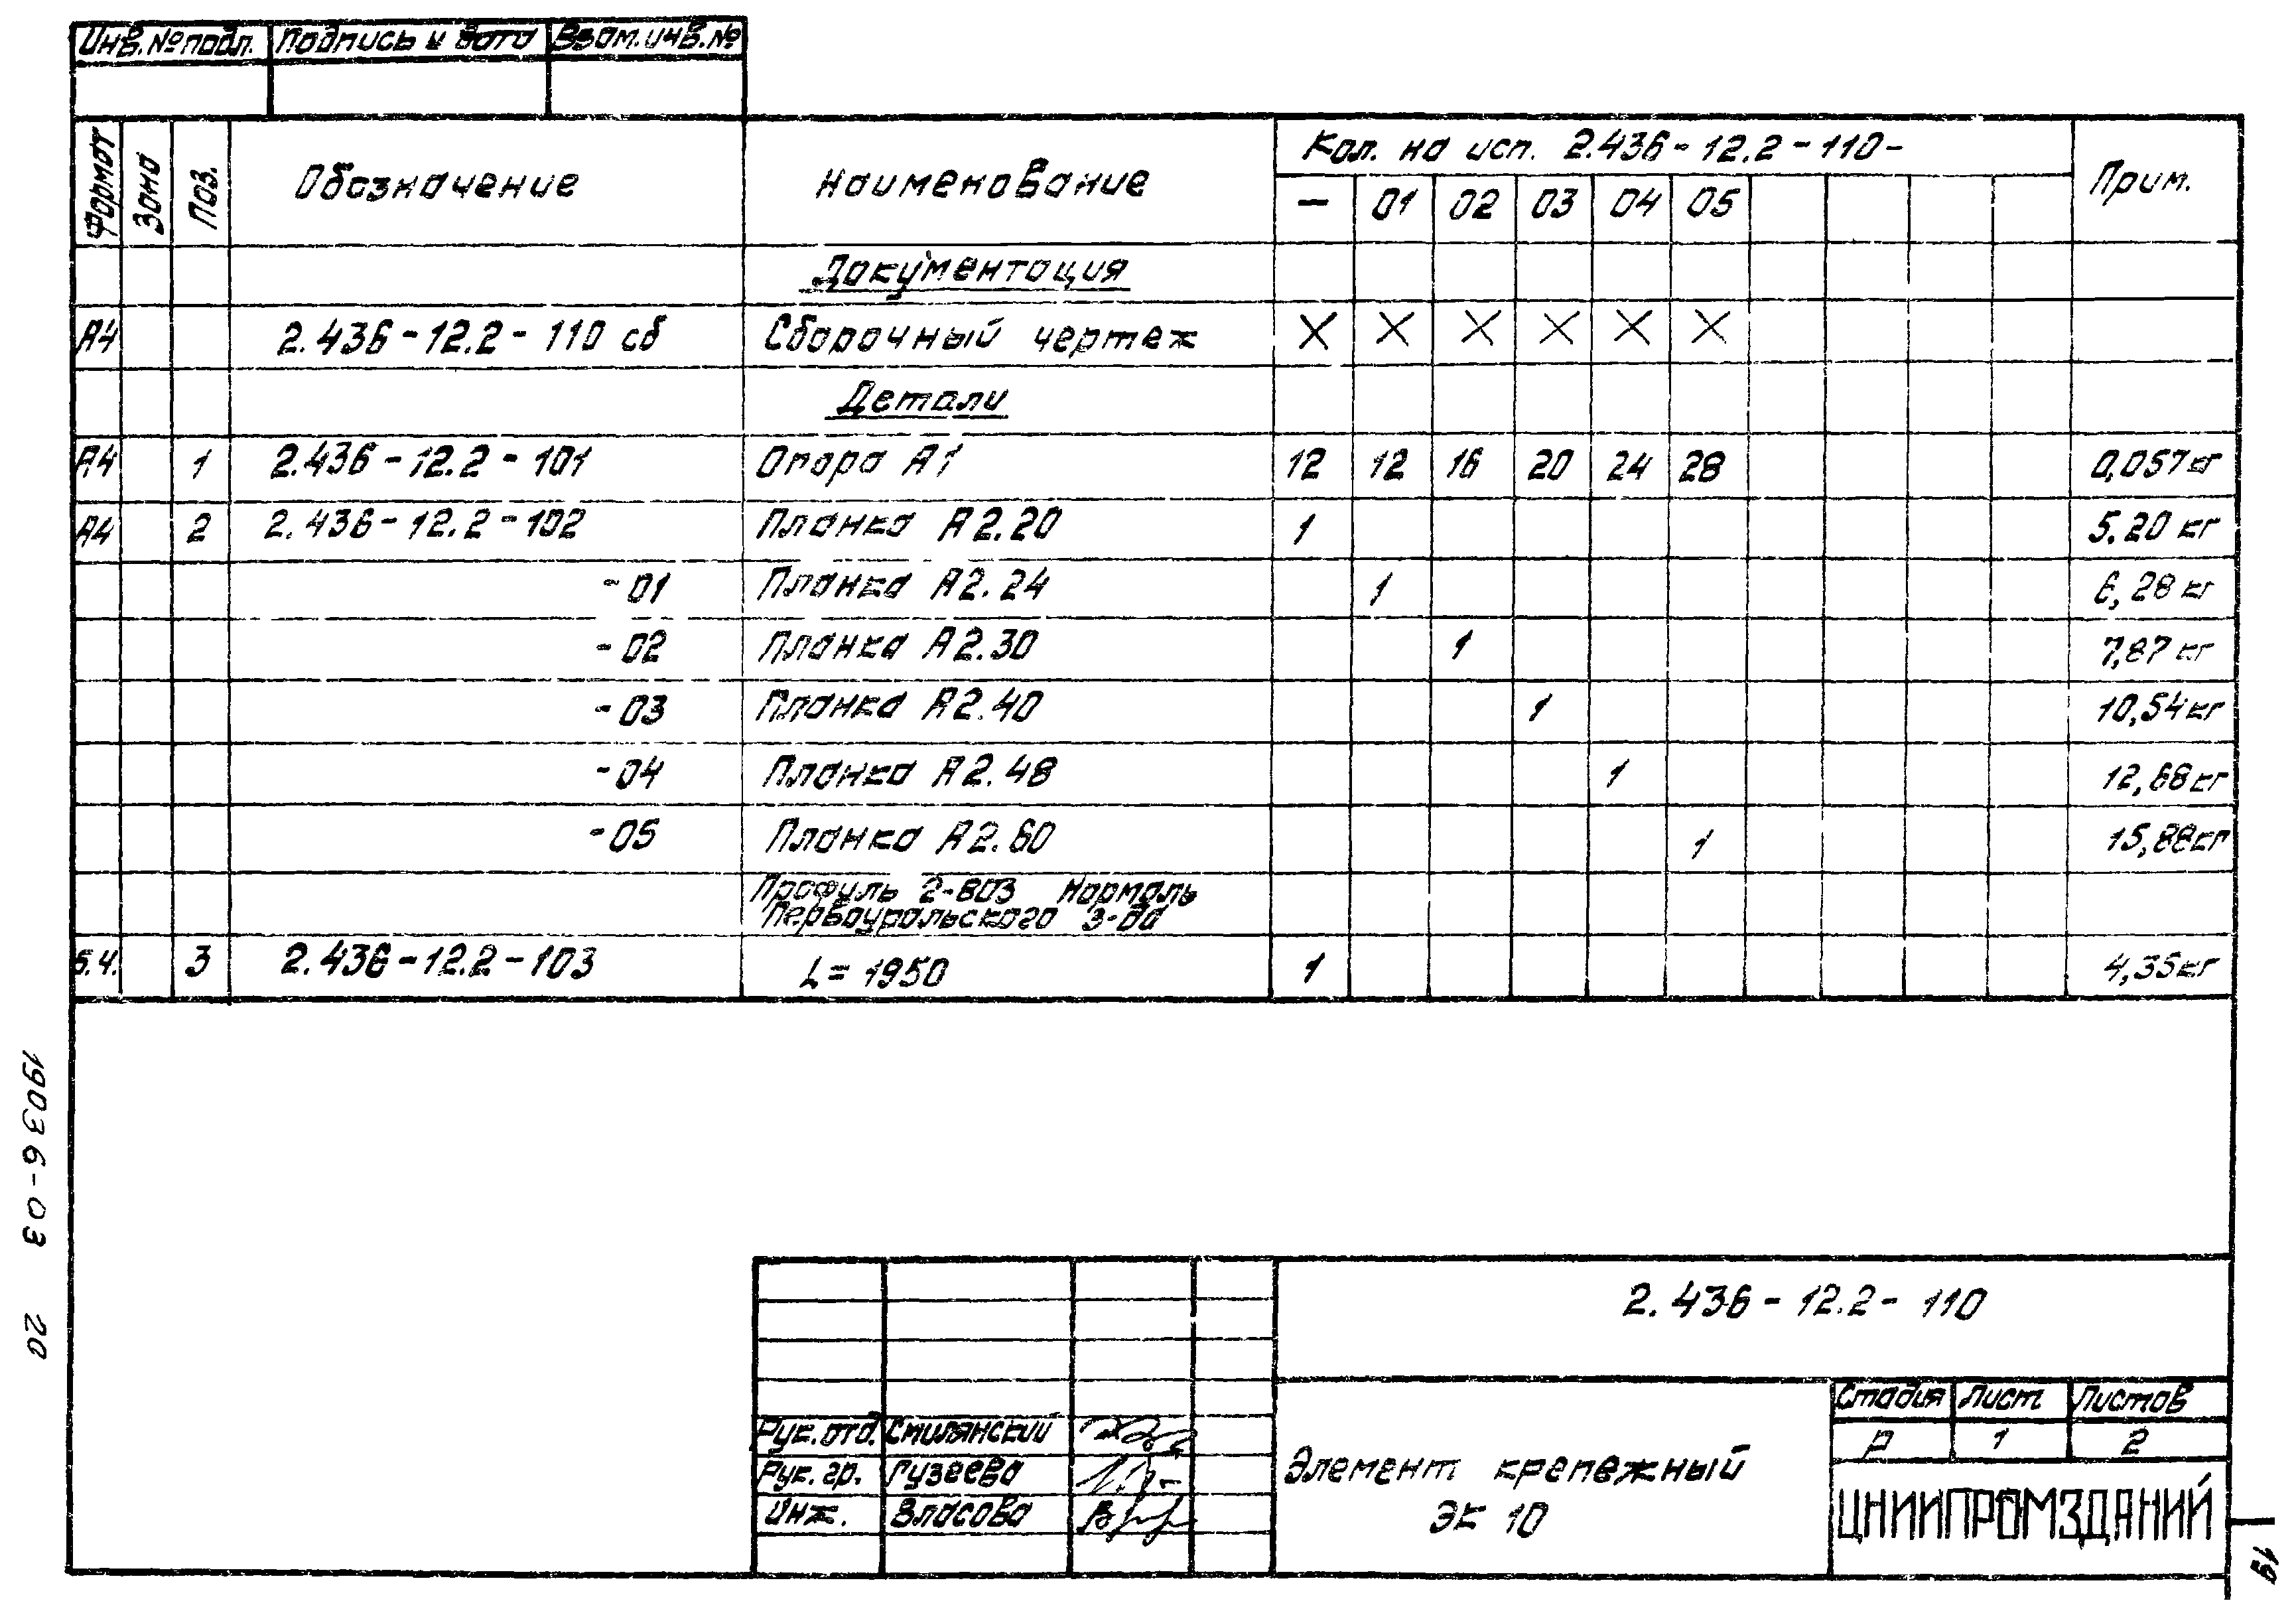 Инв.№подл. Подпись и дата Взам.инв.№
Формат Зона Поз. Обозначение Наименование Кол. на исп. 2.436-12.2-110- Прим.
- 01 02 03 04 05
Документация
А4 2.436-12.2-110 сб Сборочный чертеж X X X X X X
Детали
А4 1 2.436-12.2-101 Опора А1 12 12 16 20 24 28 0,057кг
А4 2 2.436-12.2-102 Планка А2.20 1 5.20 кг
-01 Планка А2.24 1 6,28 кг
-02 Планка А2.30 1 7,87 кг
-03 Планка А2.40 1 10,54кг
-04 Планка А2.48 1 12,68кг
-05 Планка А2.60 1 15,88кг
Профиль 2-803 Нормаль
Первоуральского з-да
Б.Ч. 3 2.436-12.2-103 L=1950 1 4,35кг
19036-03 20
2.436-12.2-110
Стадия Лист Листов
Р 1 2
Рук.отд. Смилянский
Рук.гр. Гузеева
Инж. Власова
Элемент крепежный
ЭК 10
ЦНИИПРОМЗДАНИЙ
19